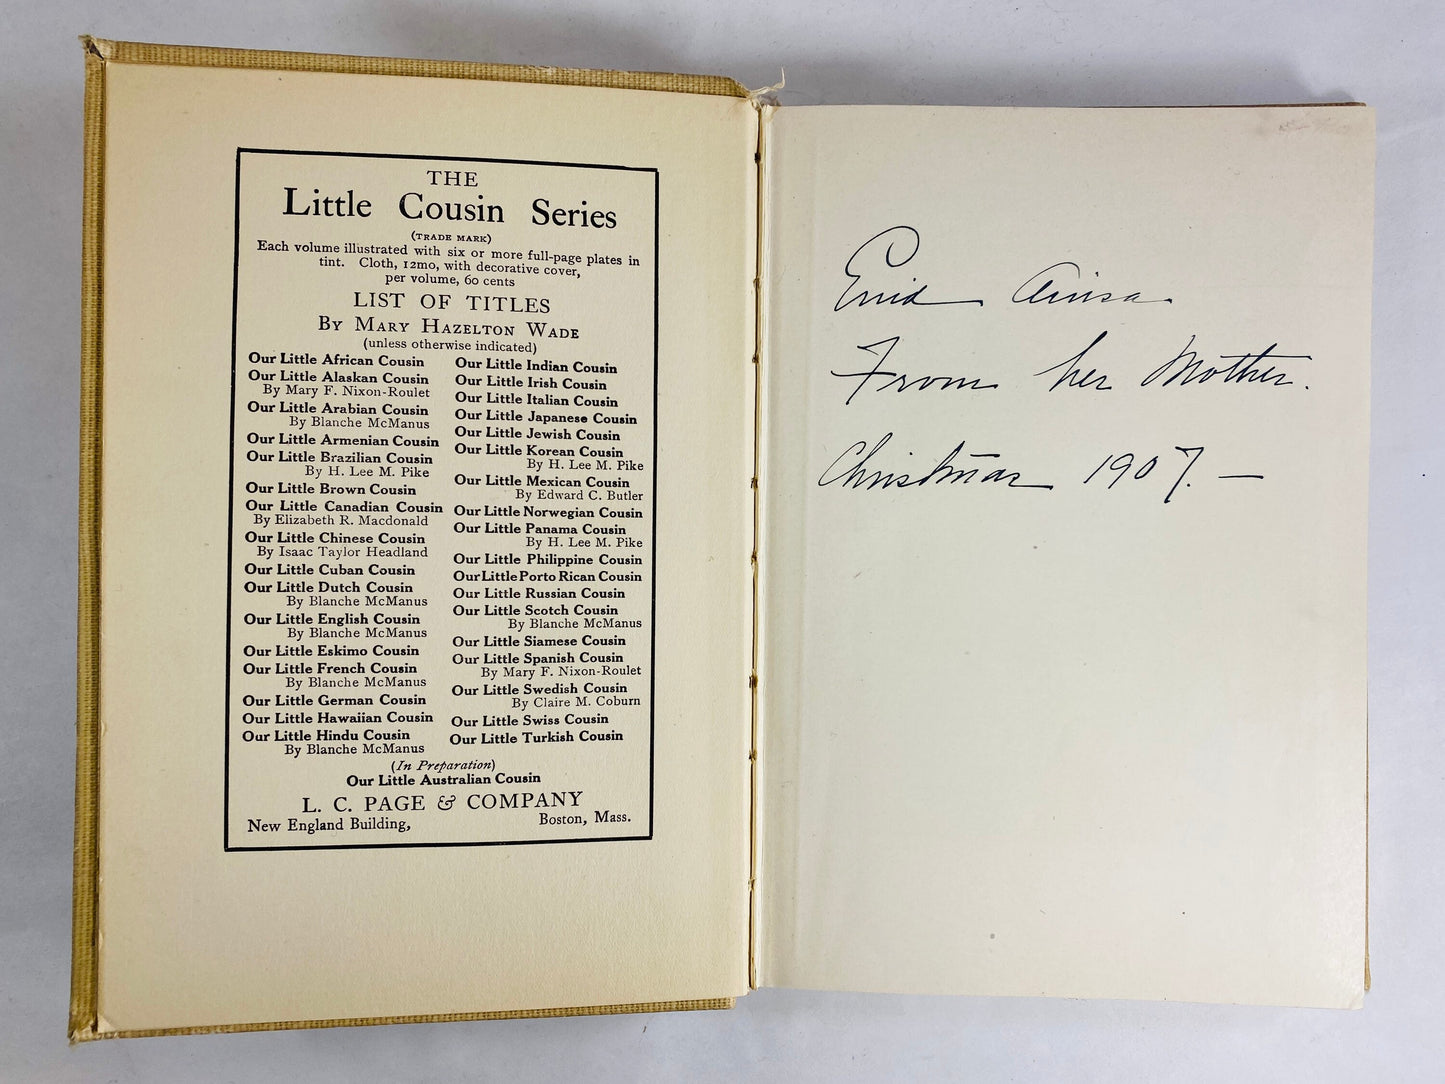 THE
Little Cousin Series
(TRADE MARK)
Each volume illustrated with six or more full-page plates in
tint. Cloth, 12mo, with decorative cover,
per volume, 60 cents
LIST OF TITLES
By Mary Hazelton Wade
(unless otherwise indicated)
Our Little African Cousin
Our Little Alaskan Cousin
By Mary F. Nixon-Roulet
Our Little Arabian Cousin
By Blanche McManus
Our Little Armenian Cousin
Our Little Brazilian Cousin
By H. Lee M. Pike
Our Little Brown Cousin
Our Little Canadian Cousin
By Elizabeth R. Macdonald
Our Little Chinese Cousin
By Isaac Taylor Headland
Our Little Cuban Cousin
Our Little Dutch Cousin
By Blanche McManus
Our Little English Cousin
By Blanche McManus
Our Little Eskimo Cousin
Our Little French Cousin
By Blanche McManus
Our Little German Cousin
Our Little Hawaiian Cousin
Our Little Hindu Cousin
By Blanche McManus
Our Little Indian Cousin
Our Little Irish Cousin
Our Little Italian Cousin
Our Little Japanese Cousin
Our Little Jewish Cousin
Our Little Korean Cousin
By H. Lee M. Pike
Our Little Mexican Cousin
By Edward C. Butler
Our Little Norwegian Cousin
Our Little Panama Cousin
By H. Lee M. Pike
Our Little Philippine Cousin
Our Little Porto Rican Cousin
Our Little Russian Cousin
Our Little Scotch Cousin
By Blanche McManus
Our Little Siamese Cousin
Our Little Spanish Cousin
By Mary F. Nixon-Roulet
Our Little Swedish Cousin
By Claire M. Coburn
Our Little Swiss Cousin
Our Little Turkish Cousin
(In Preparation)
Our Little Australian Cousin
L. C. PAGE & COMPANY
New England Building, Boston, Mass.
Enid Ainsa
From her Mother.
Christmas 1907. —